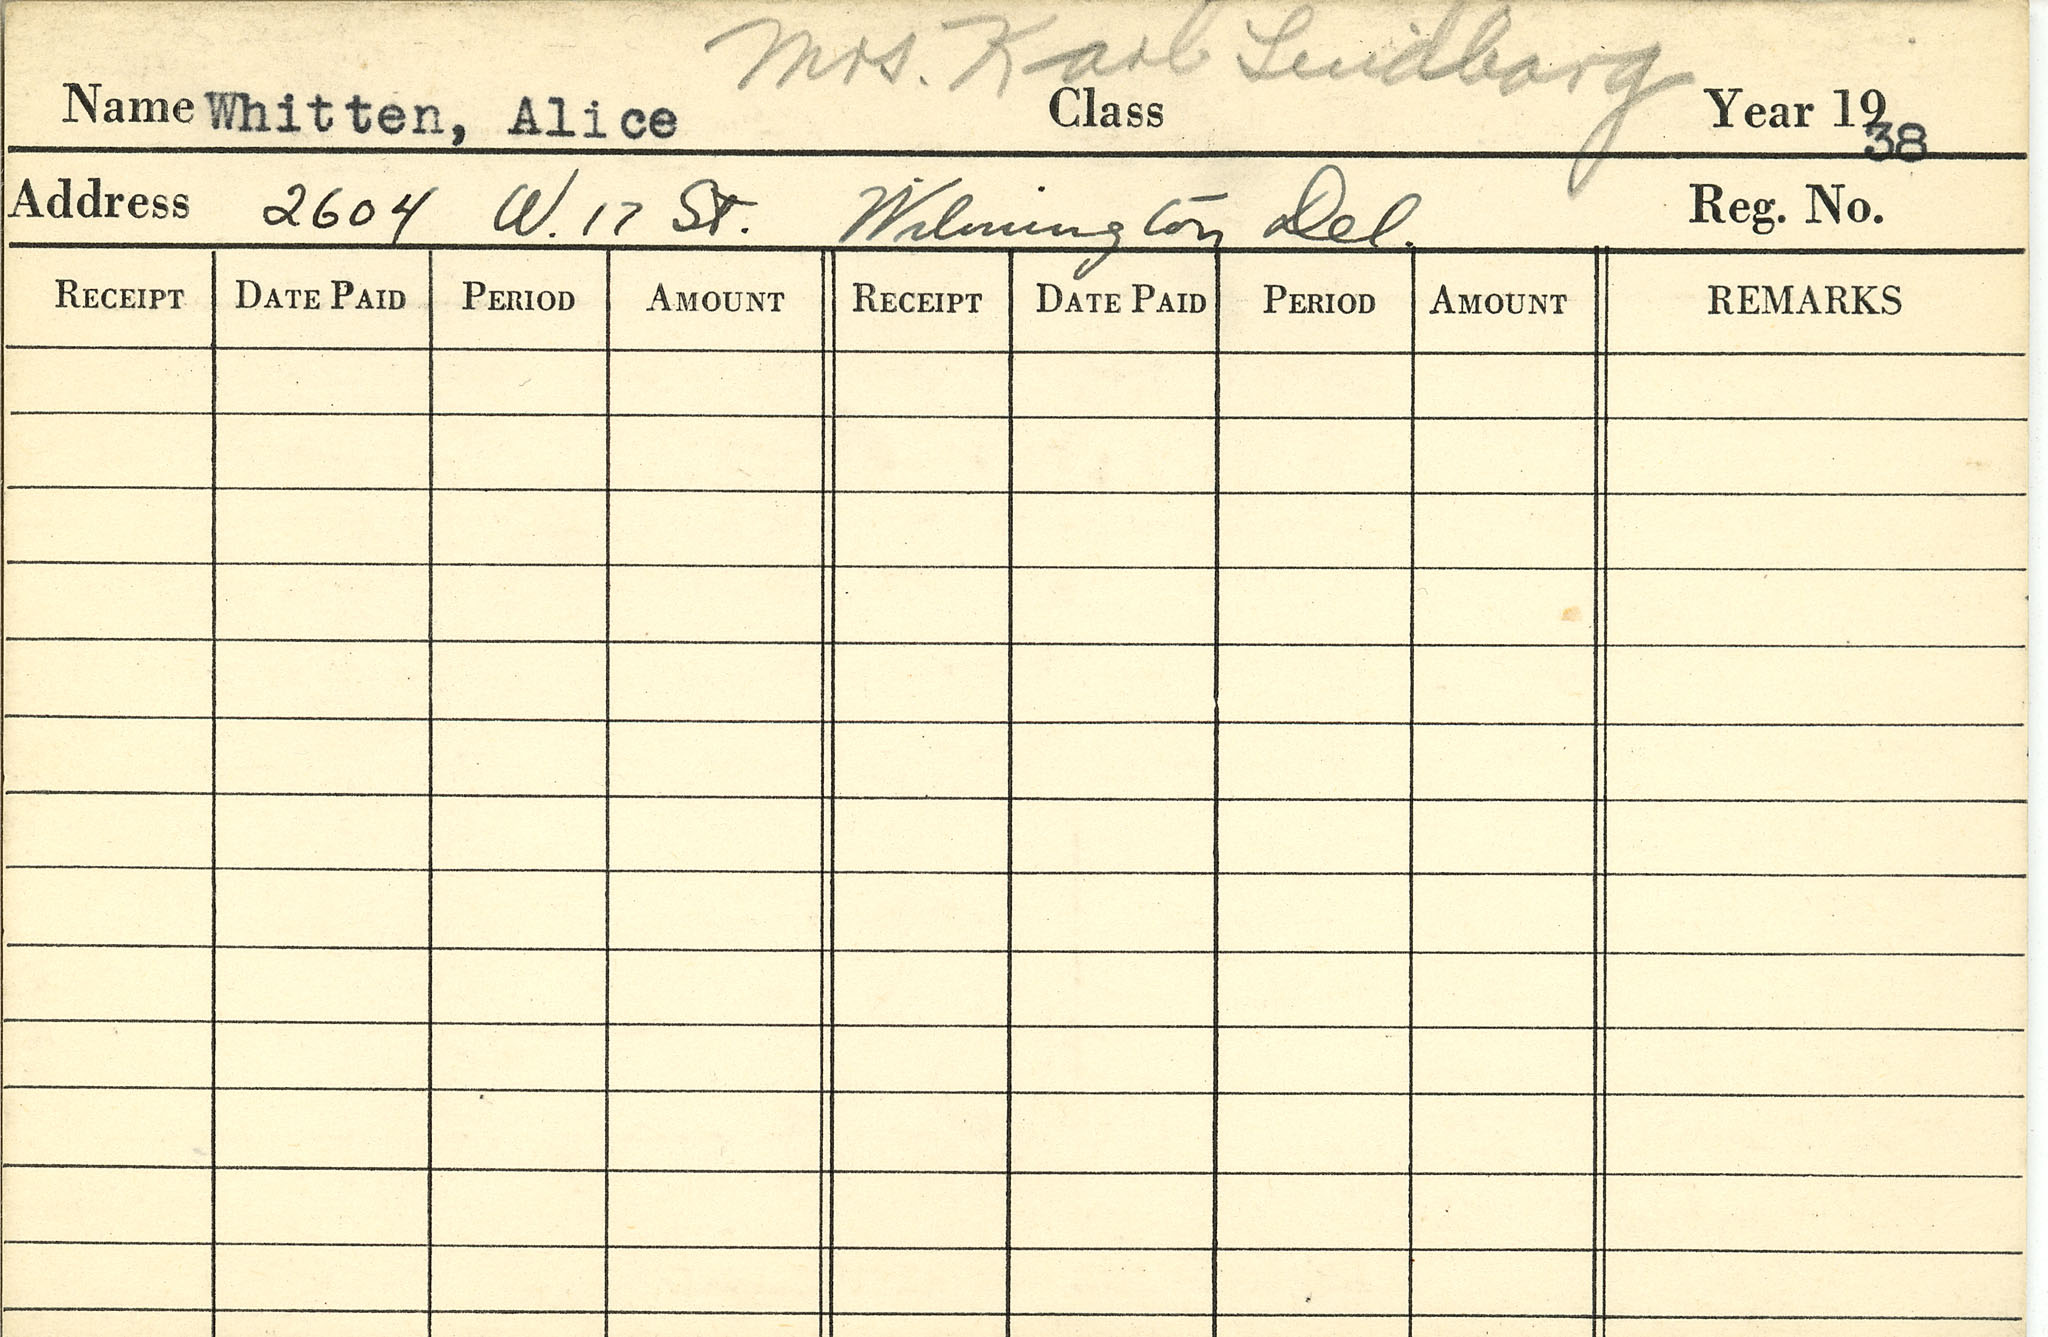 Mrs. Karl Lindborg
Name Whitten, Alice Class Year 1938
Address 2604 W. 17 St. Wilmington Del. Reg. No.
RECEIPT DATE PAID PERIOD AMOUNT RECEIPT DATE PAID PERIOD AMOUNT REMARKS